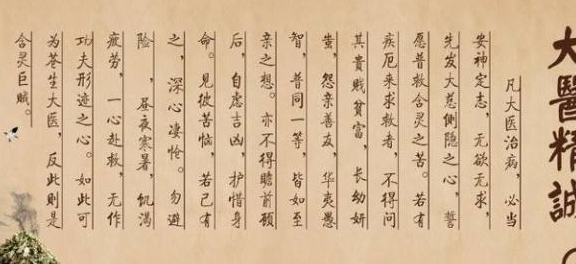 大醫精誠
凡大医治病，必当
安神定志，无欲无求，
先发大慈恻隐之心，誓
愿普救含灵之苦。若有
疾厄来求救者，不得问
其貴賤貧富，长幼妍
蚩，怨亲善友，华夷愚
智，普同一等，皆如至
亲之想。亦不得瞻前顾
后，自虑吉凶，护惜身
命。见彼苦恼，若己有
之，深心凄怆。勿避
险，昼夜寒暑，饥渴
疲劳，一心赴救，无作
功夫形迹之心。如此可
为苍生大医，反此则是
含灵巨贼。